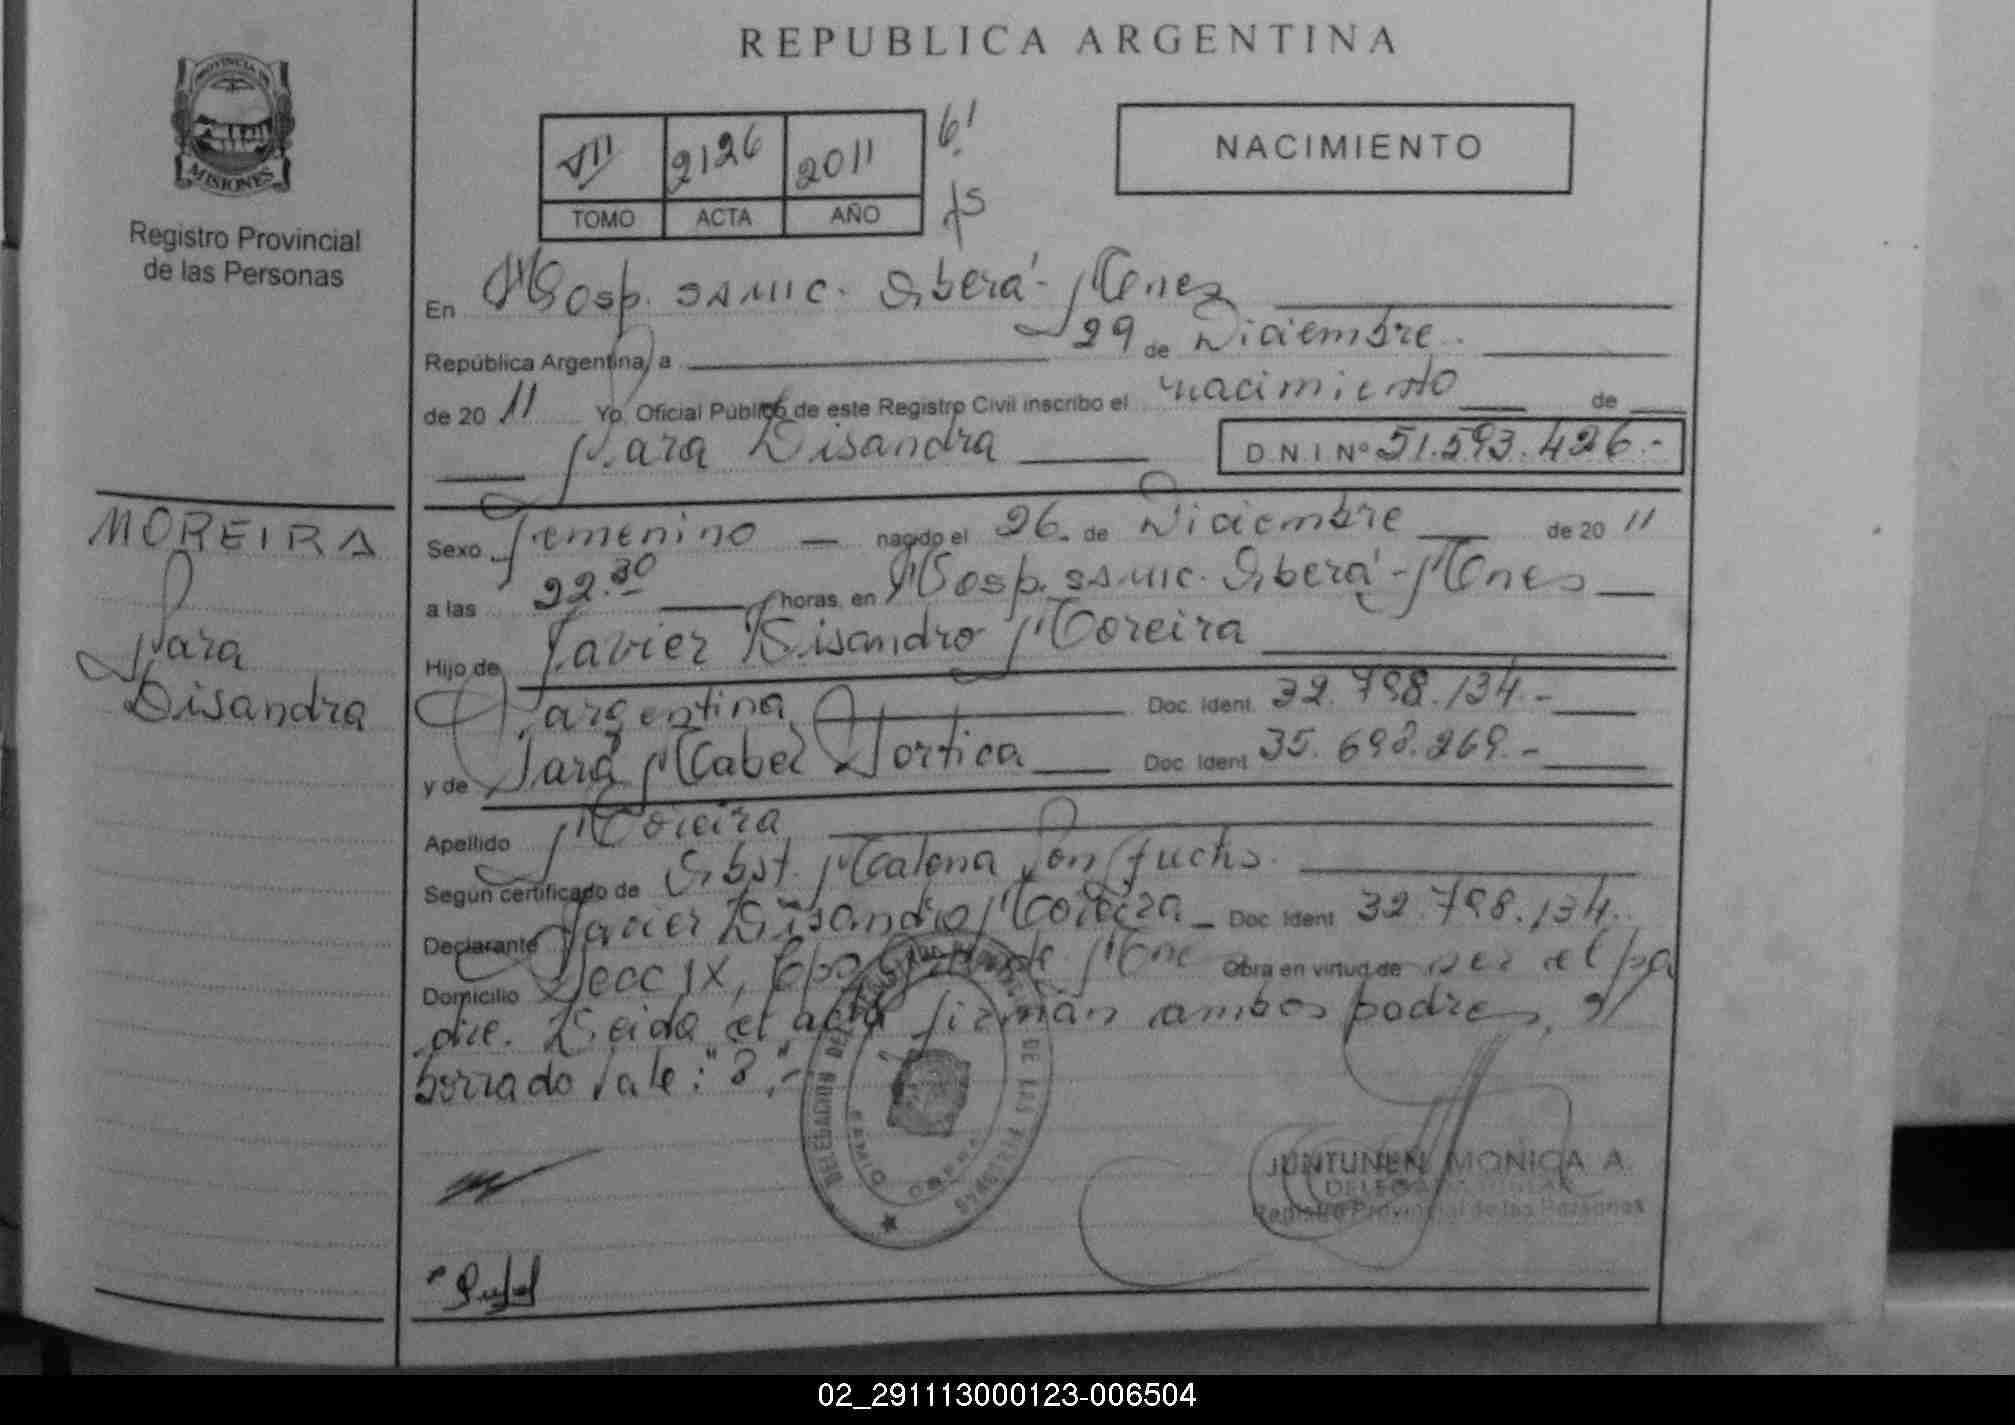 REPUBLICA ARGENTINA
PROVINCIA DE
MISIONES
Registro Provincial
de las Personas
VII 2126 2011
TOMO ACTA AÑO
NACIMIENTO
En Hosp. SAMIC. Oberá - Mnes
República Argentina, a 29 de Diciembre
de 20 11 Yo, Oficial Público de este Registro Civil inscribo el nacimiento de
Yara Lisandra D.N.I Nº 51.593.426.-
MOREIRA
Yara
Lisandra
Sexo Femenino nacido el 26. de Diciembre de 20 11
a las 22.30 horas, en Hosp. SAMIC. Oberá - Mnes
Hijo de Javier Lisandro Moreira
Argentina Doc. Ident. 32.798.134.-
y de Sara Mabel Doc. Ident 35.698.269.-
Apellido Moreira
Según certificado de Obst. Malena
Declarante Javier Lisandro Moreira - Doc. Ident 32.798.134.
Domicilio Secc IX, Obra en virtud de ser el pa
dre. Leida el acta firman ambos padres,
borrado Vale: "8".-
DE LAS PERSONAS
JUNTUNEN MONICA A.
Registro Provincial de las Personas
02_291113000123-006504